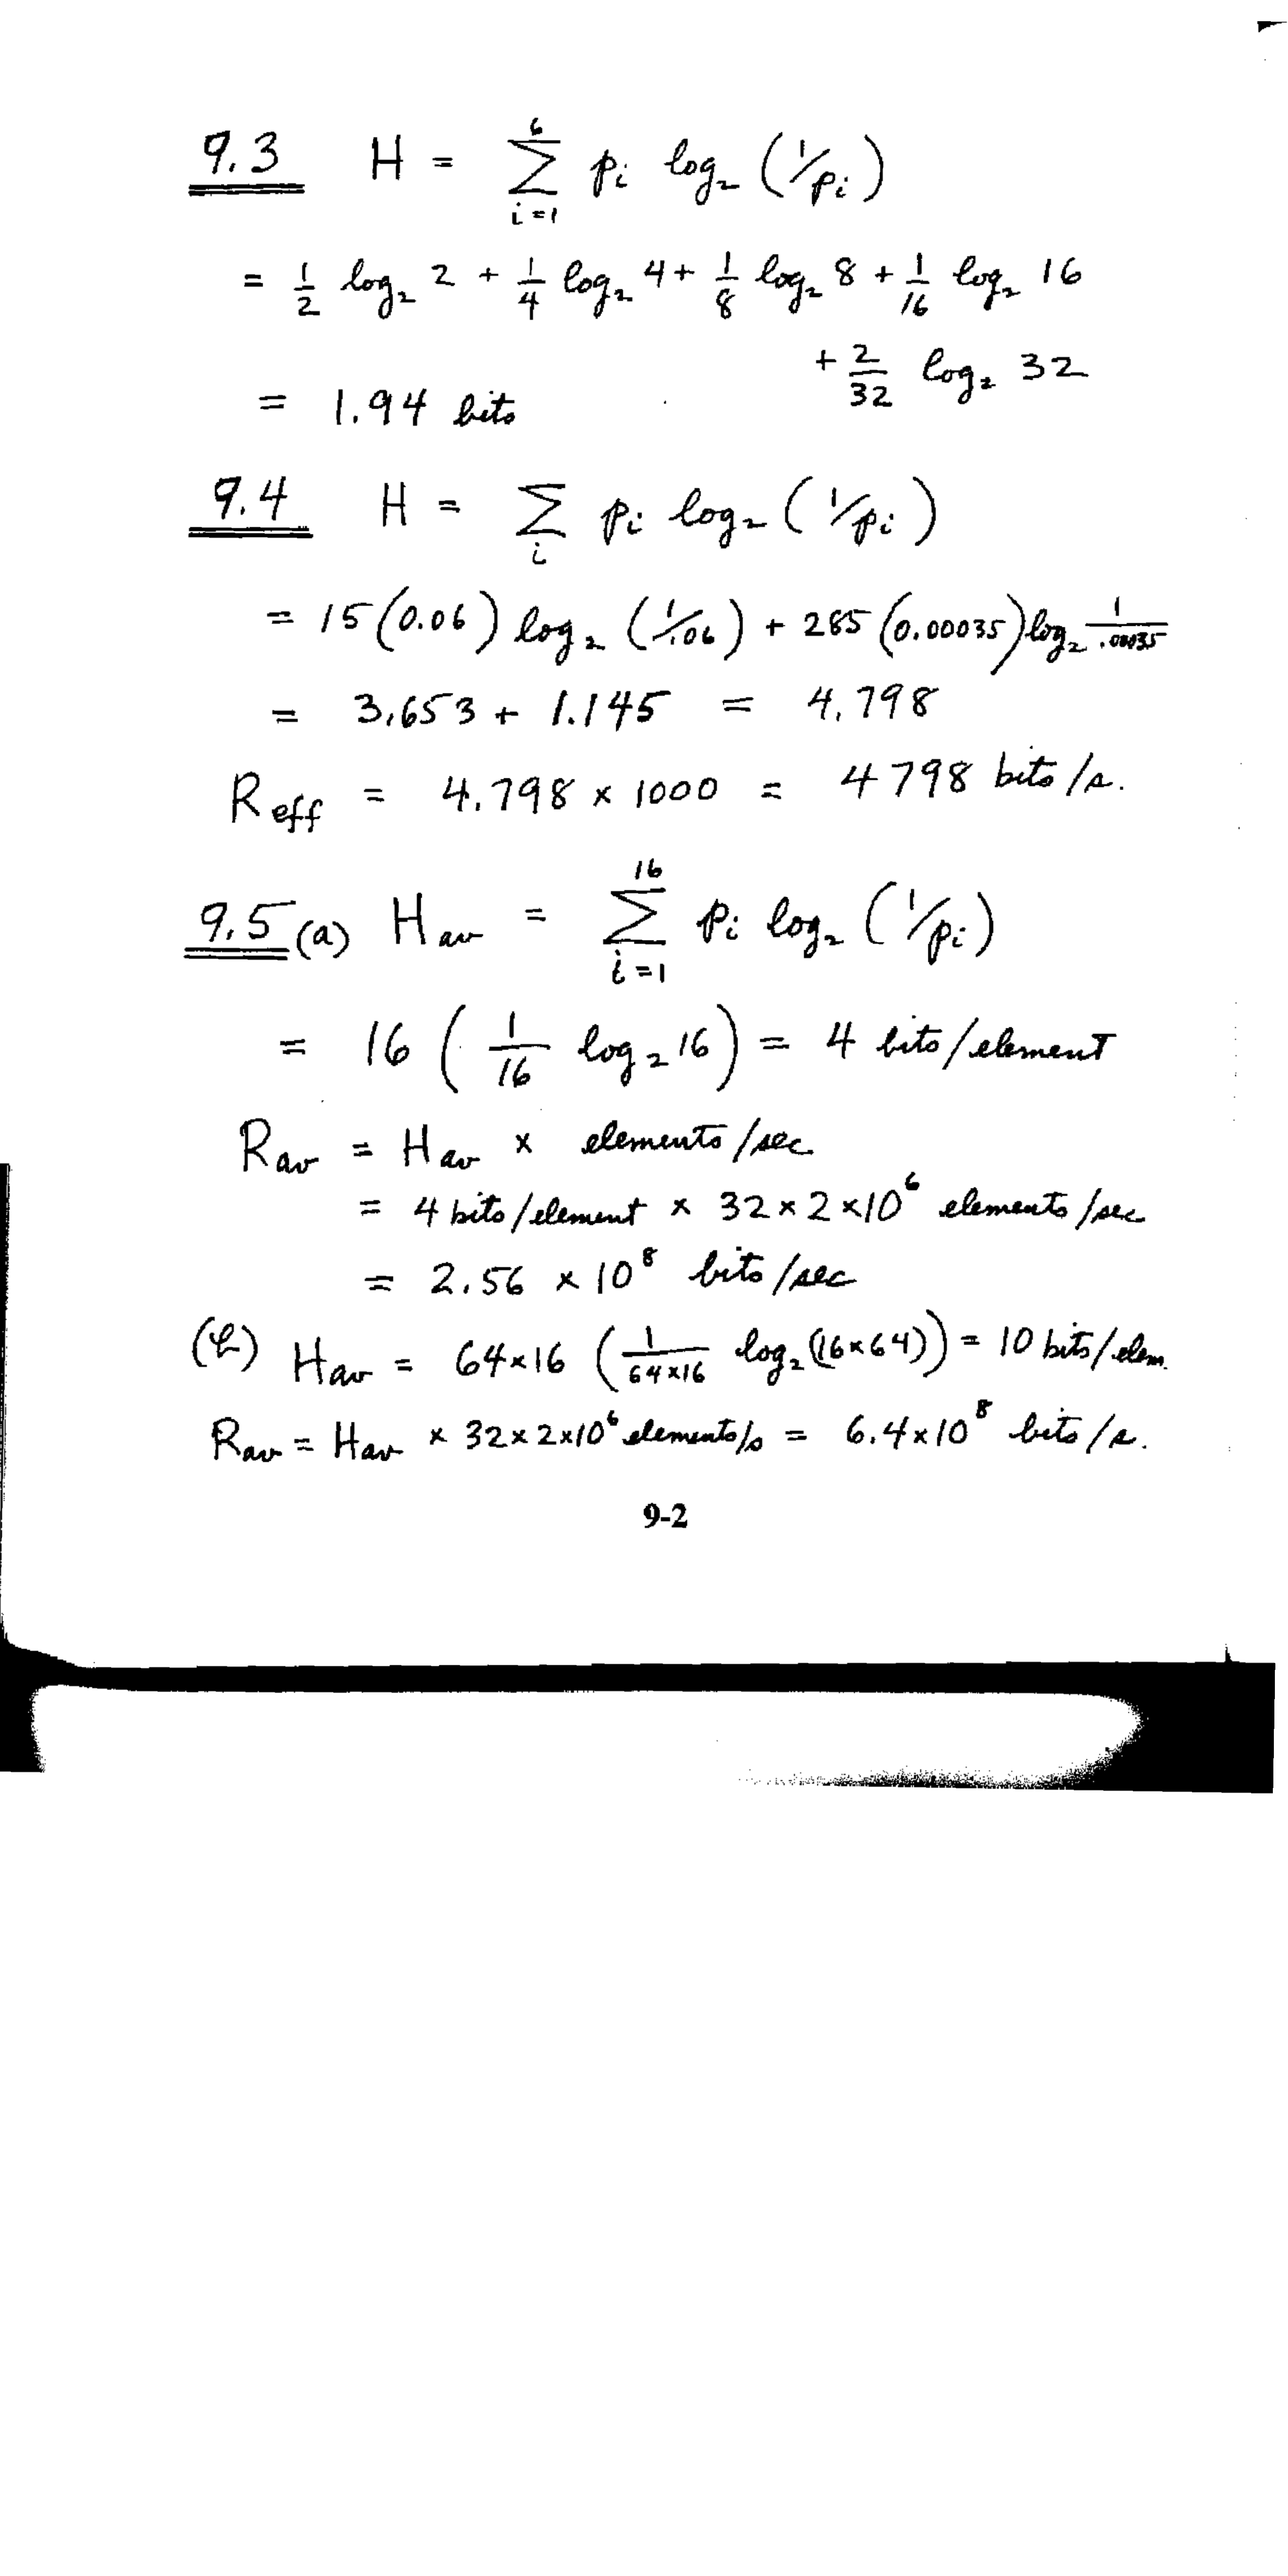 9.3 H = Σ_{i=1}^{6} p_i log₂ (1/p_i)
= 1/2 log₂ 2 + 1/4 log₂ 4 + 1/8 log₂ 8 + 1/16 log₂ 16
+ 2/32 log₂ 32
= 1.94 bits
9.4 H = Σ_i p_i log₂ (1/p_i)
= 15 (0.06) log₂ (1/.06) + 285 (0.00035) log₂ 1/.00035
= 3.653 + 1.145 = 4.798
R_eff = 4.798 × 1000 = 4798 bits/s.
9.5 (a) H_av = Σ_{i=1}^{16} p_i log₂ (1/p_i)
= 16 ( 1/16 log₂ 16 ) = 4 bits/element
R_av = H_av × elements/sec
= 4 bits/element × 32 × 2 × 10⁶ elements/sec
= 2.56 × 10⁸ bits/sec
(b) H_av = 64×16 ( 1/64×16 log₂ (16×64)) = 10 bits/elem.
R_av = H_av × 32×2×10⁶ elements/s = 6.4×10⁸ bits/s.
9-2